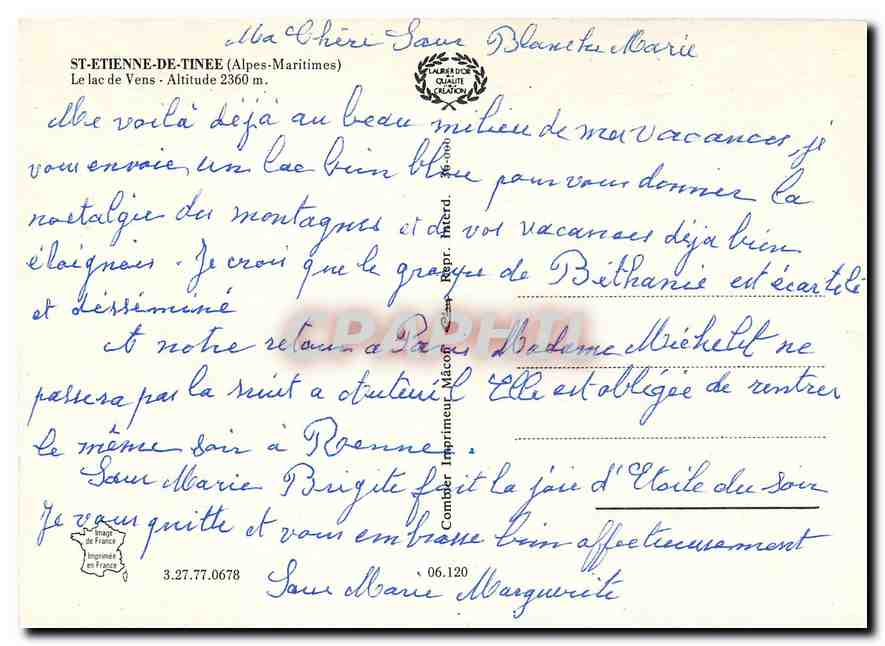 Ma Chère Sœur Blanche Marie
ST-ETIENNE-DE-TINEE (Alpes-Maritimes)
Le lac de Vens - Altitude 2360 m.
LAURIER D'OR
DE LA
QUALITÉ
CRÉATION
Me voilà déjà au beau milieu de mes vacances, je
vous envoie un lac bien bleu pour vous donner la
nostalgie des montagnes et de vos vacances déja bien
éloignées. Je crois que le groupe de Béthanie est écartelé
et disséminé
A notre retour a Paris Madame Michelet ne
passera pas la nuit a Auteuil Elle est obligée de rentrer
le même soir à Roenne.
Sœur Marie Brigite fait la joie d'Etoile du soir
Je vous quitte et vous embrasse bien affectueusement
Sœur Marie Marguerite
Combier Imprimeur Mâcon Repr. Interd. 36-000
CPAPHIL
Image
de France
Imprimée
en France
3.27.77.0678
06.120